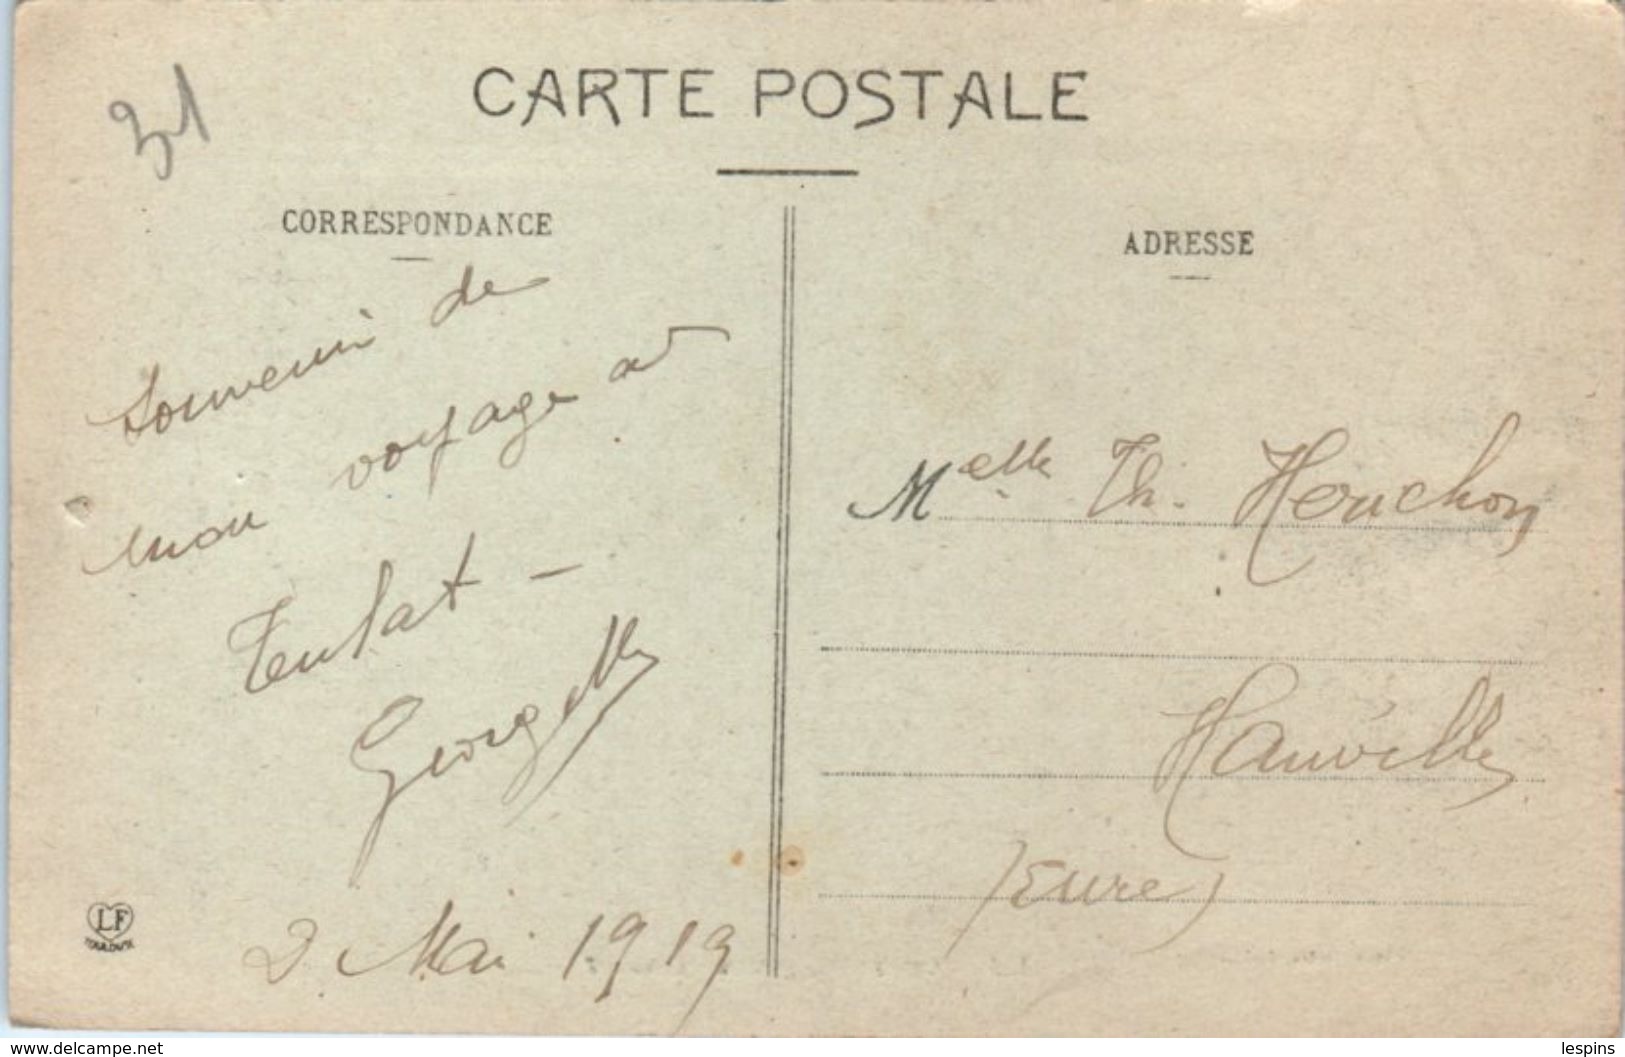 31
CARTE POSTALE
CORRESPONDANCE
Souvenir de
mon voyage à
Teulat -
Georgette
2 Mai 1919
LF
TOULOUSE
ADRESSE
Melle Th. Houchon
Hauville
(Eure)
www.delcampe.net
lespins